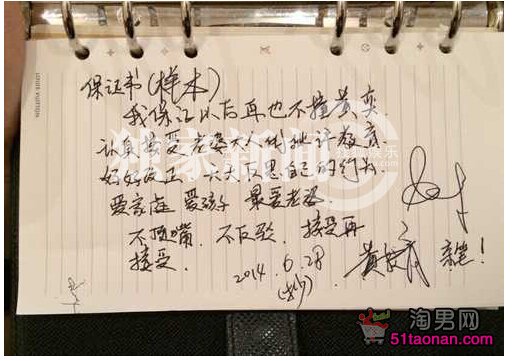 LOUIS VUITTON
保证书(样本)
我保证以后再也不撞黄奕
认真接受老婆大人的批评教育
好好改正、天天反思自己的行为.
爱家庭 爱孩子 最爱老婆
不顶嘴. 不反驳. 接受再
接受.
2014.6.28
(抄)
黄毅清 亲笔!
独家新闻
娱乐
淘男网
51taonan.com